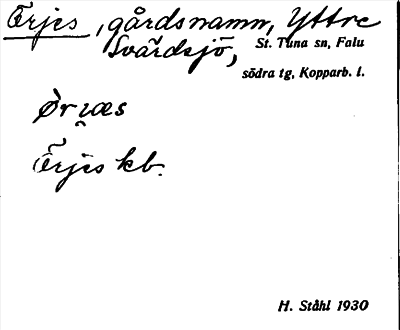 Örjes, gårdsnamn, Yttre
Svärdsjö, St. Tuna sn, Falu
södra tg, Kopparb. l.
Örjes kb.
H. Ståhl 1930